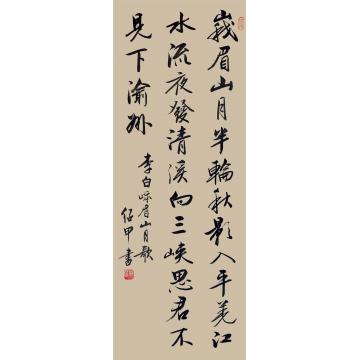 峩眉山月半輪秋影入平羌江
水流夜發清溪向三峽思君不
見下渝州
李白峨眉山月歌
甲書